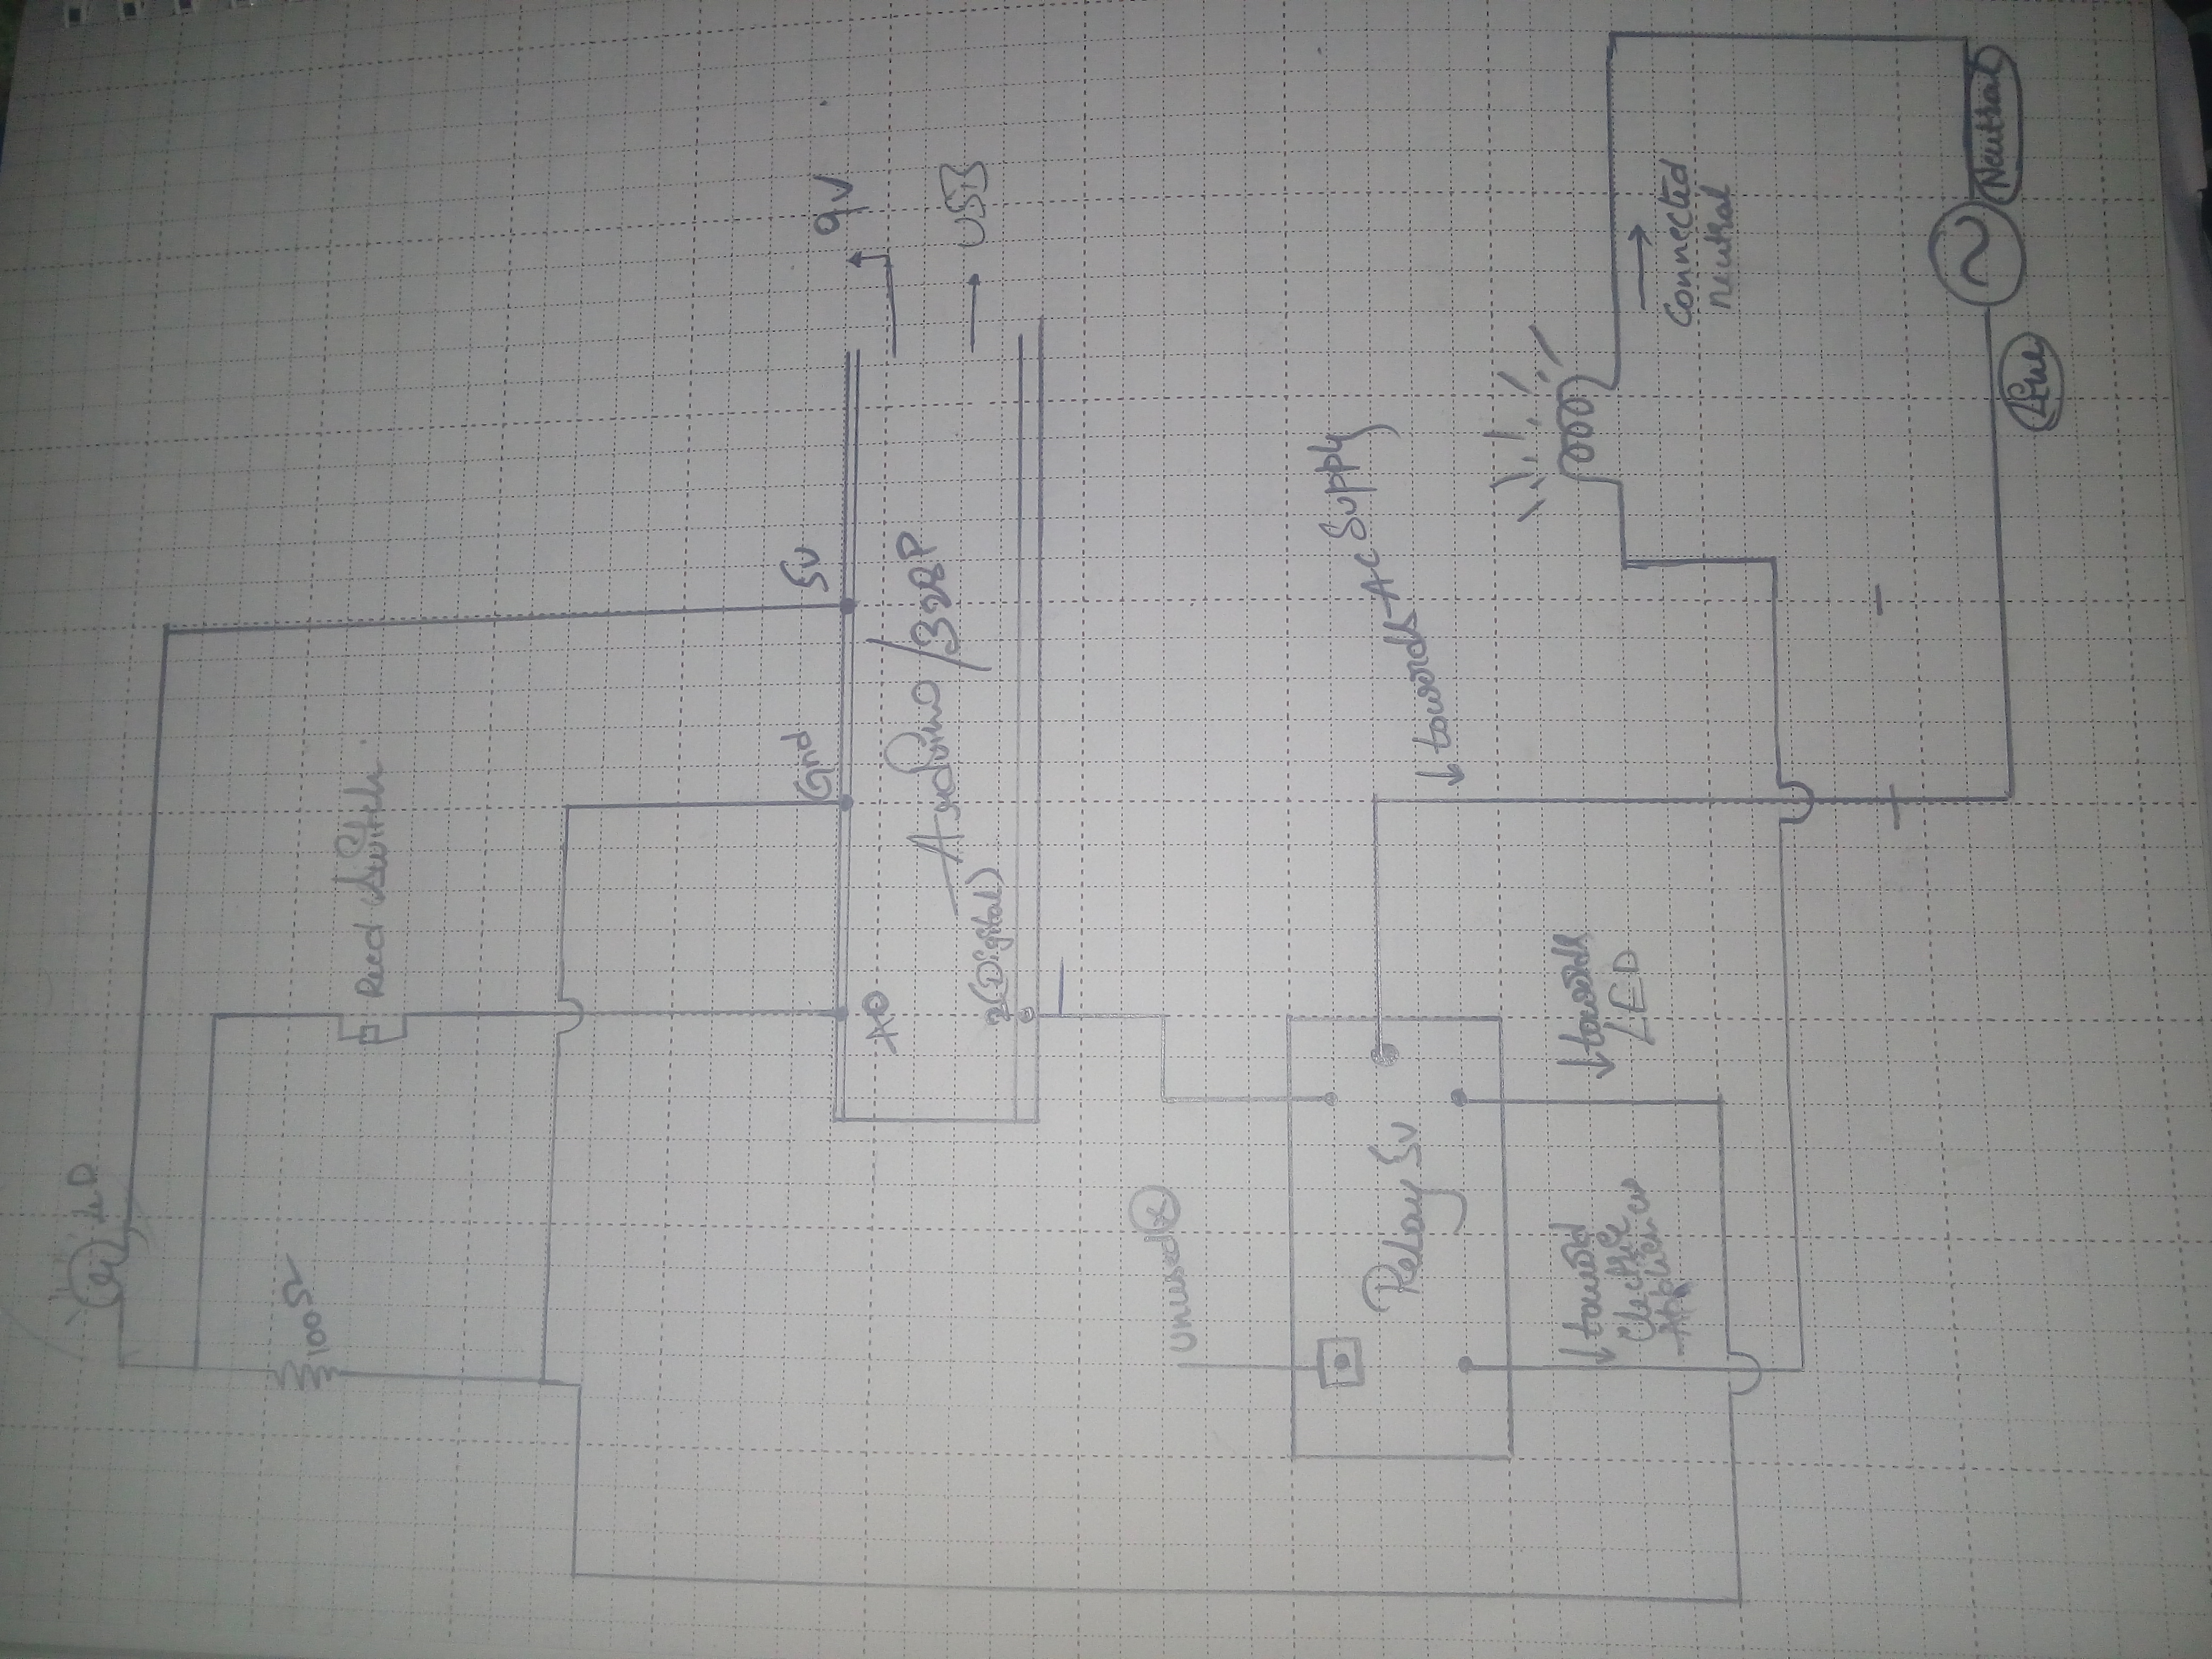 LED
100Ω
Reed Switch
Gnd
5v
9V
A0
Arduino/328P
2(Digital)
USB
unused
Relay 5v
towards AC Supply
toward
Electric
towards
LED
Connected
neutral
Neutral
Line